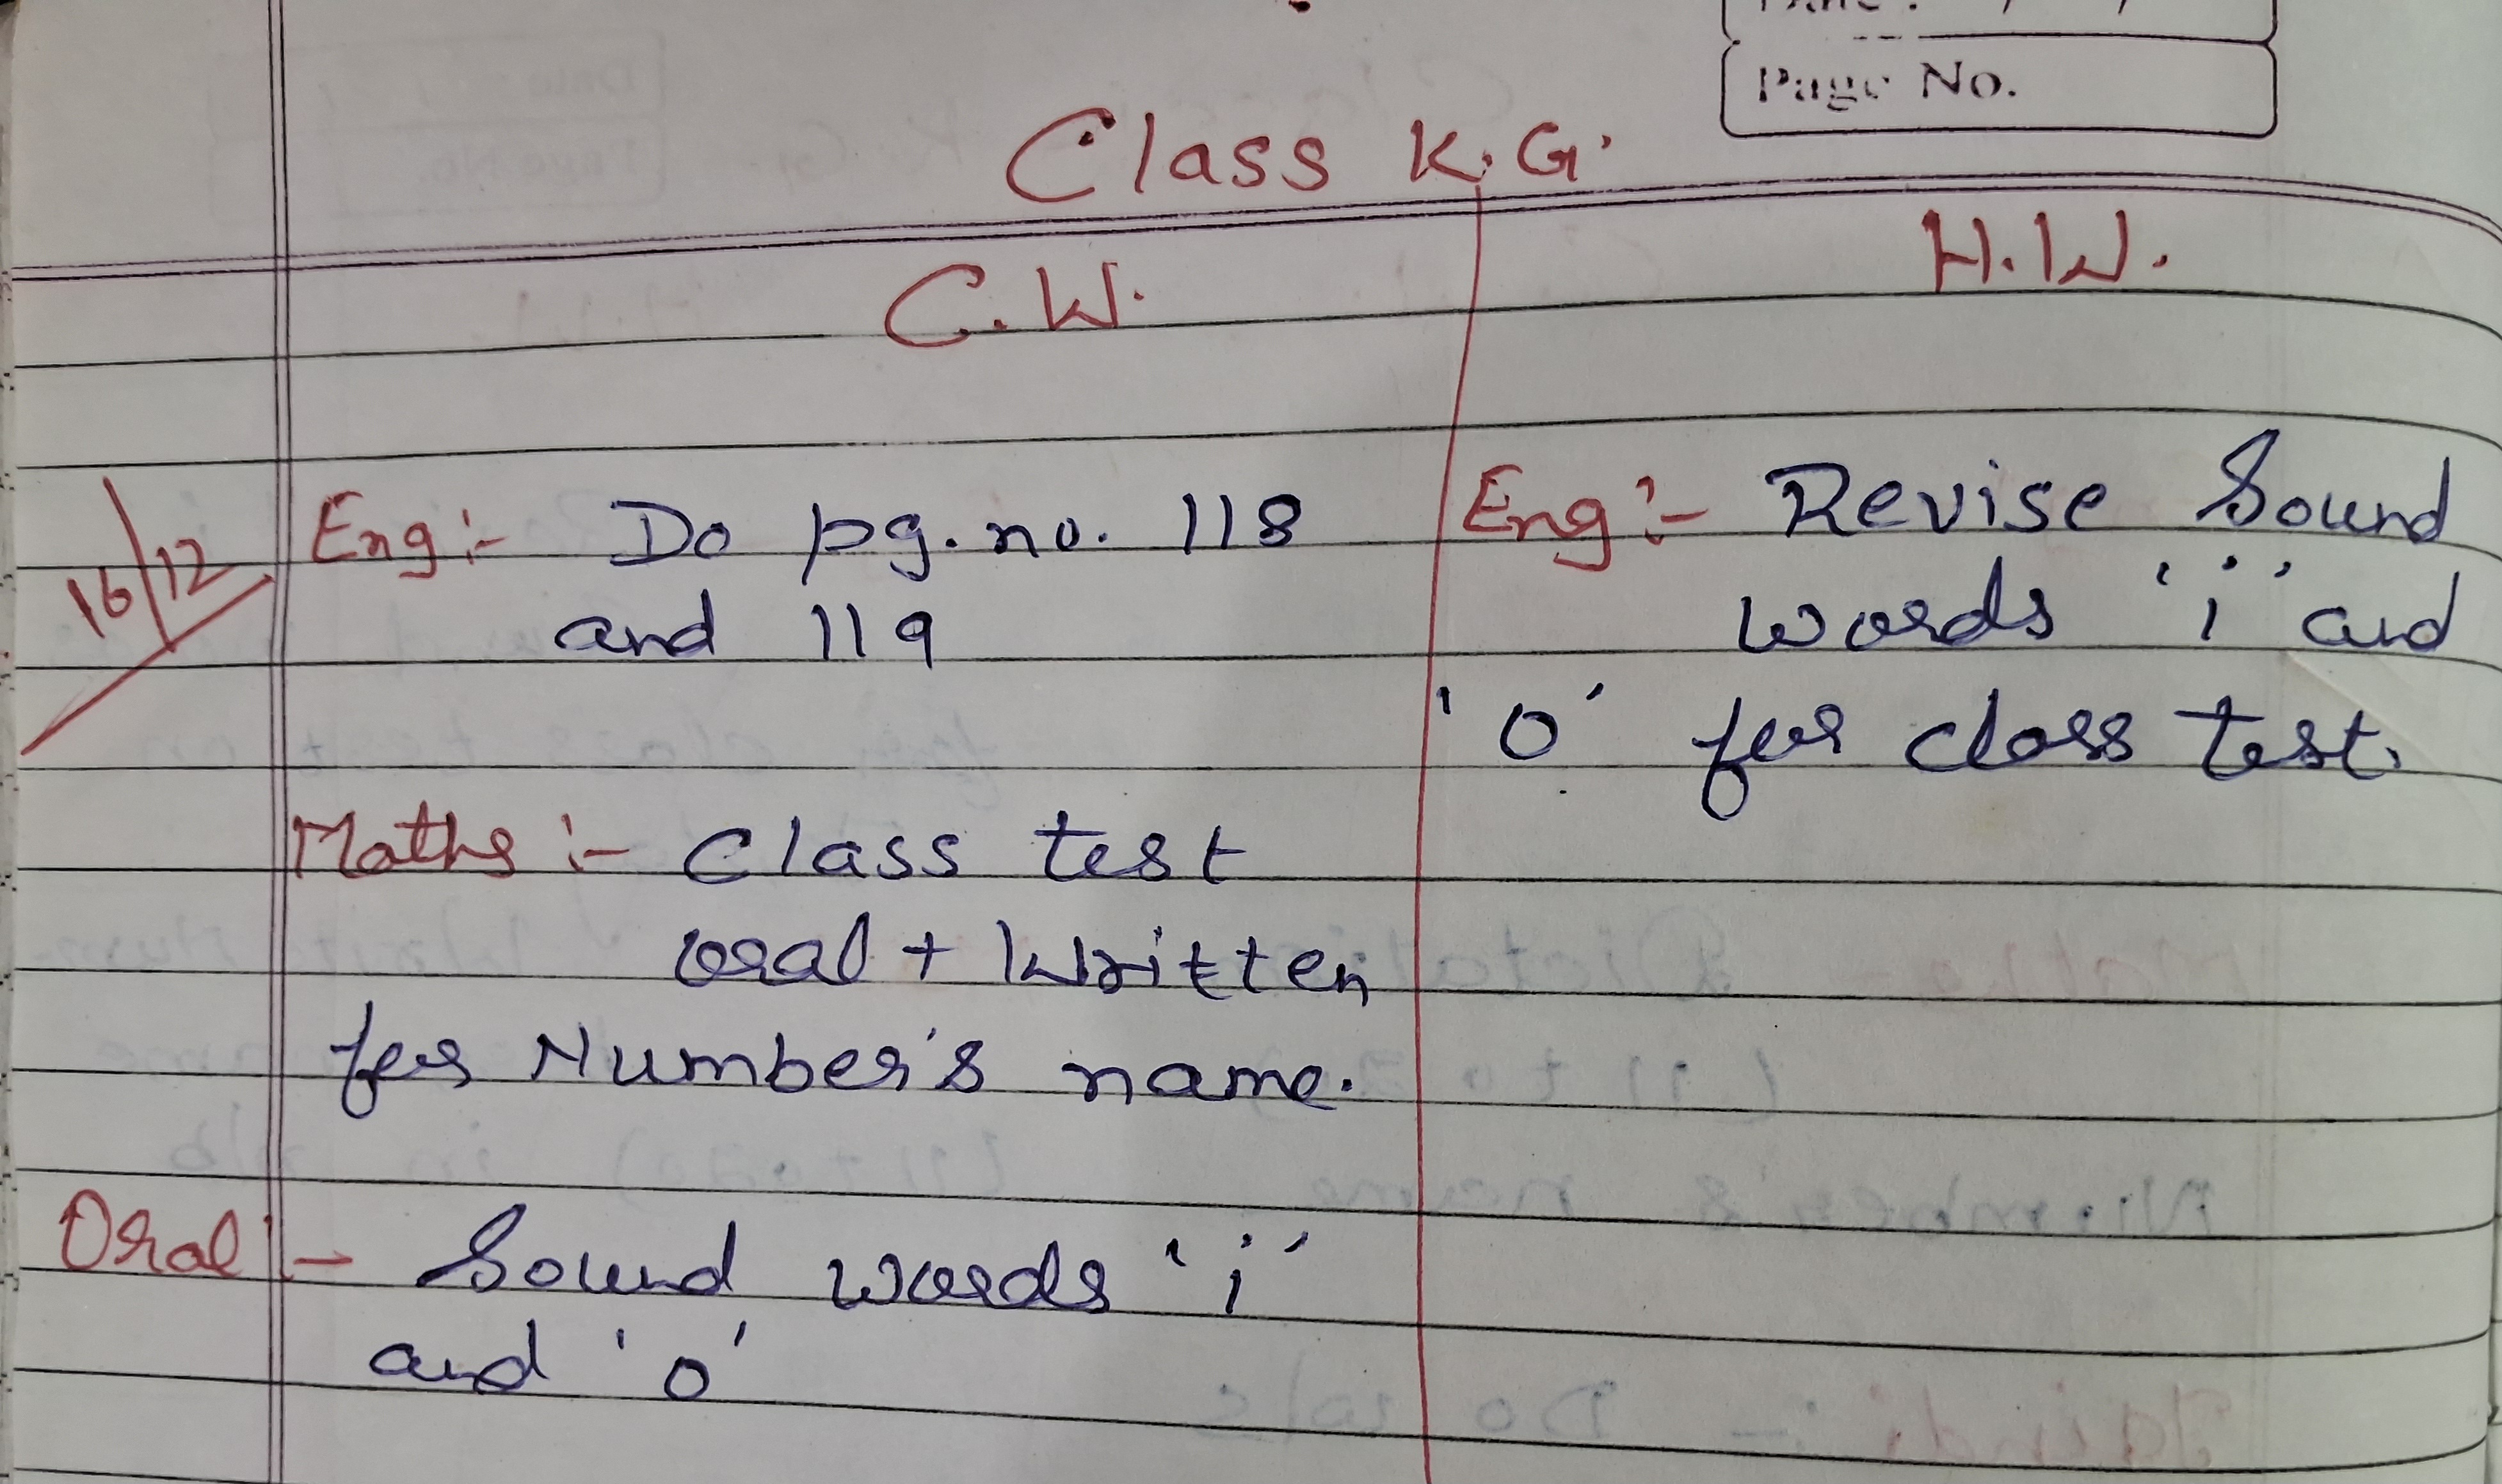 Page No.
Class K.G.
C.W.
H.W.
16/12
Eng:- Do pg. no. 118
and 119
Maths :- Class test
oral + Written
for Number's name.
Oral :- Sound words 'i'
and 'o'
Eng :- Revise Sound
words 'i' and
'o' for class test.